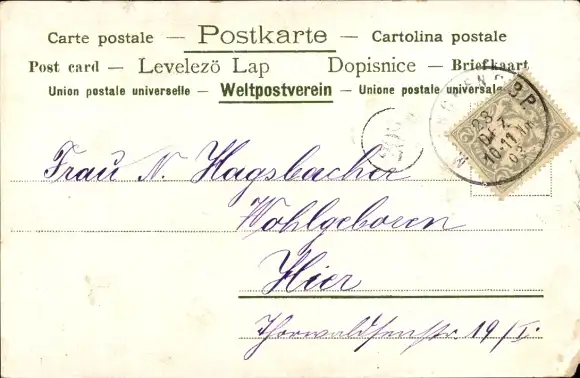 Carte postale — Postkarte — Cartolina postale
Post card — Levelezö Lap Dopisnice — Briefkaart
Union postale universelle — Weltpostverein — Unione postale universale
MÜNCHEN B.P.
28
DEZ.
10-11 Vm
03
Frau N. Hagsbacher
Wohlgeboren
Hier
Thorwaldsenstr. 19/I.